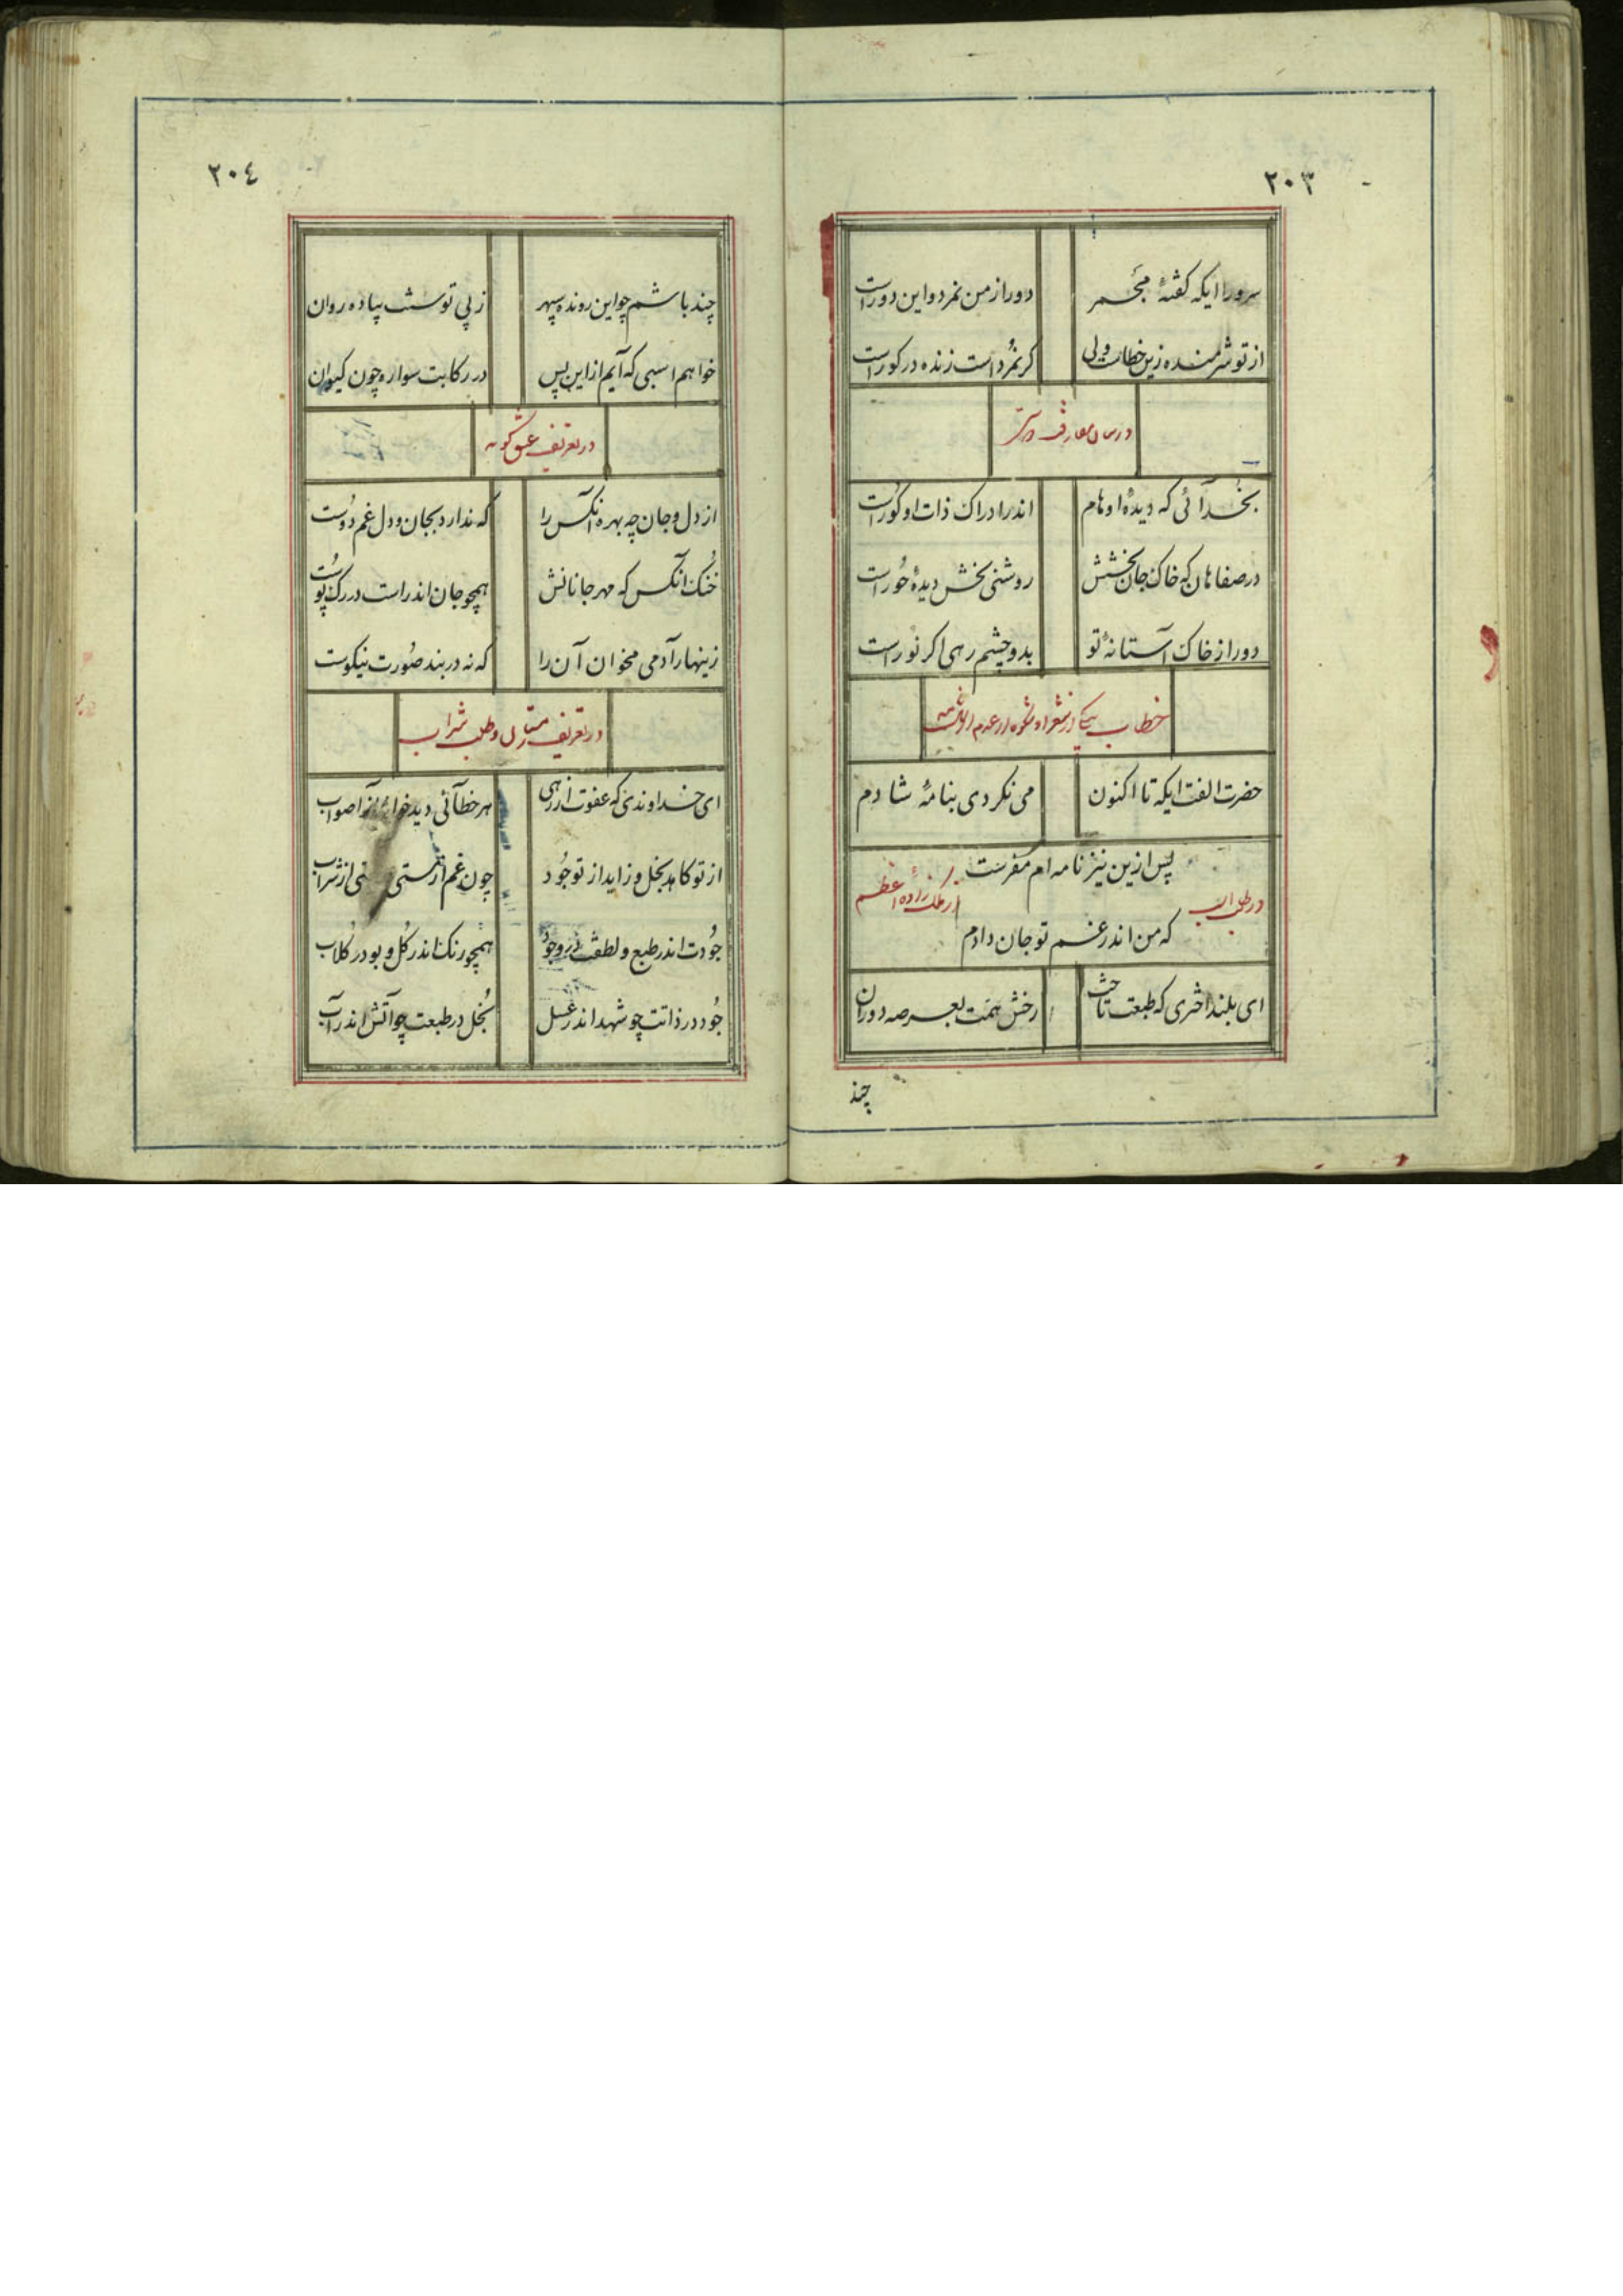 ۲۰۳
سرورا ایکه کفتهٔ مجمر دور از من نمرد و این دور است
از تو شرمنده زین خطاست ولی کر نمرد است زنده در کور است
در بیان مفارقت
بخدآئی که دیدهٔ اوهام اندر ادراک ذات او کور است
در صفاهان که خاک جان بخشش روشنی بخش دیدهٔ حور است
دور از خاک آستانهٔ تو بدو چشم رهی اکر نور است
خطاب بیکی از شعرا و شکوه از عدم
حضرت الفت ایکه تا اکنون می نکردی بنامهٔ شادم
پس ازین نیز نامه ام مفرست
در طلب اسب از ملک زادهٔ اعظم
که من اندر غم تو جان دادم
ای بلند اختری که طبعت تاخت رخش همت بعرصه دوران
چند
۲۰٤
چند باشم چو این رونده سپهر ز پی توسنت پیاده روان
خواهم اسبی که آیم از این پس در رکابت سواره چون کیوان
در تعریف عشق کوید
از دل و جان چه بهره آنکس را که ندارد بجان و دل غم دوست
خنک آنکس که مهر جانانش همچو جان اندر است در رک و پوست
زینهار آدمی مخوان آن را که نه در بند صورت نیکوست
در تعریف و طلب شراب
ای خداوندی که عفوت از رهی هر خطآئی دید خواند آنرا صواب
از تو کاهد بخل و زاید از تو جود چون غم از مستی از شراب
جودت اندر طبع و لطفت در وجود همچو رنک اندر کل و بو در کلاب
جود در ذاتت چو شهد اندر عسل بخل در طبعت چو آتش اندر آب